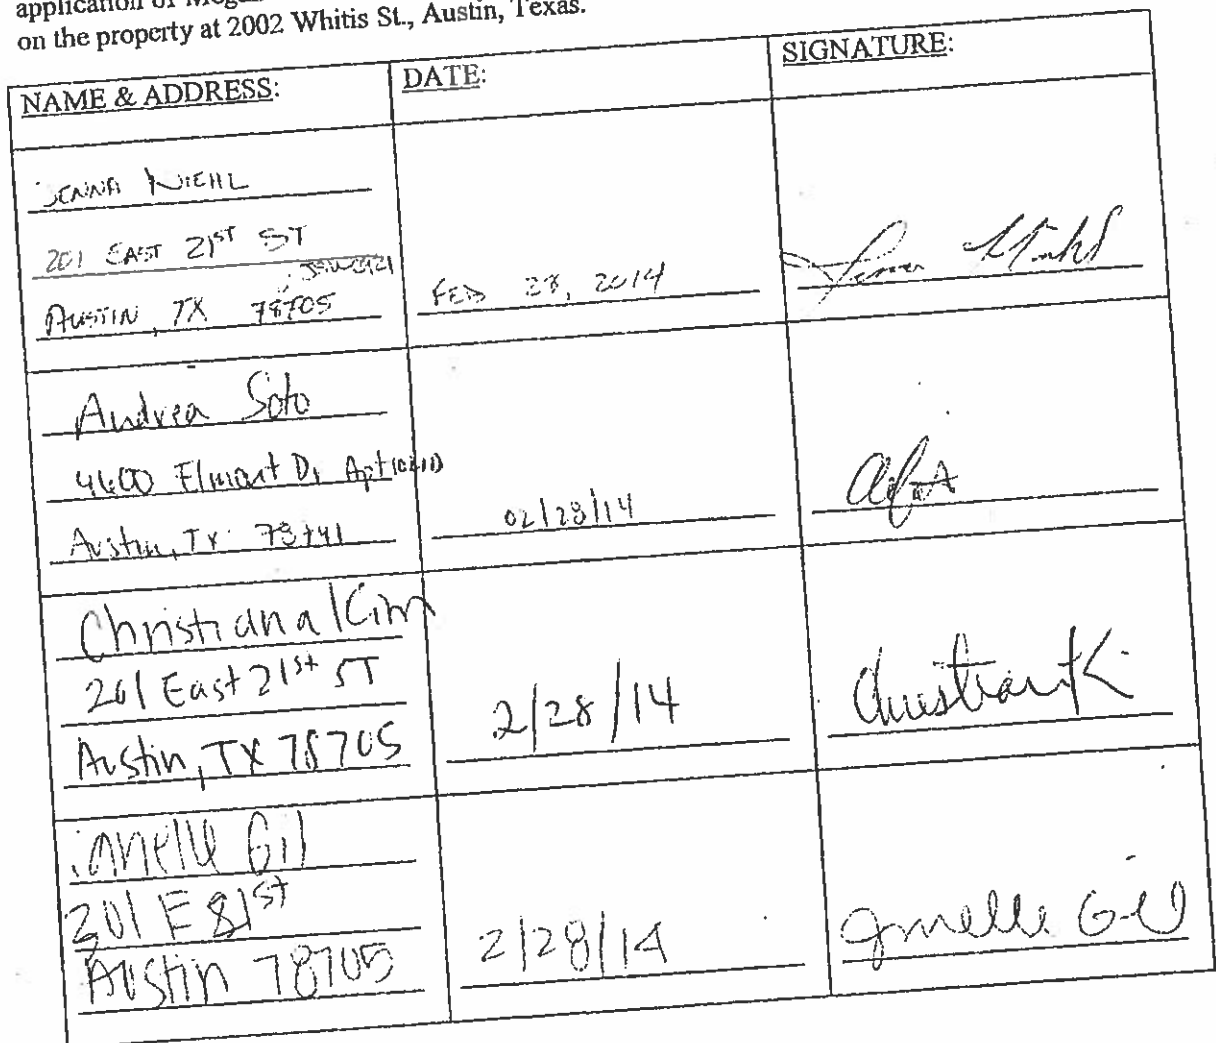 application of
on the property at 2002 Whitis St., Austin, Texas.
NAME & ADDRESS:
DATE:
SIGNATURE:
JENNA NIEHL
201 EAST 21ST ST
AUSTIN, TX 78705
FEB 28, 2014
Andrea Soto
4600 Elmont Dr Apt
Austin, Tx 78741
02/28/14
Christiana Kim
201 East 21st ST
Austin, TX 78705
2/28/14
Janelle Gil
201 E 81st
Austin 78705
2/28/14
Janelle Gil